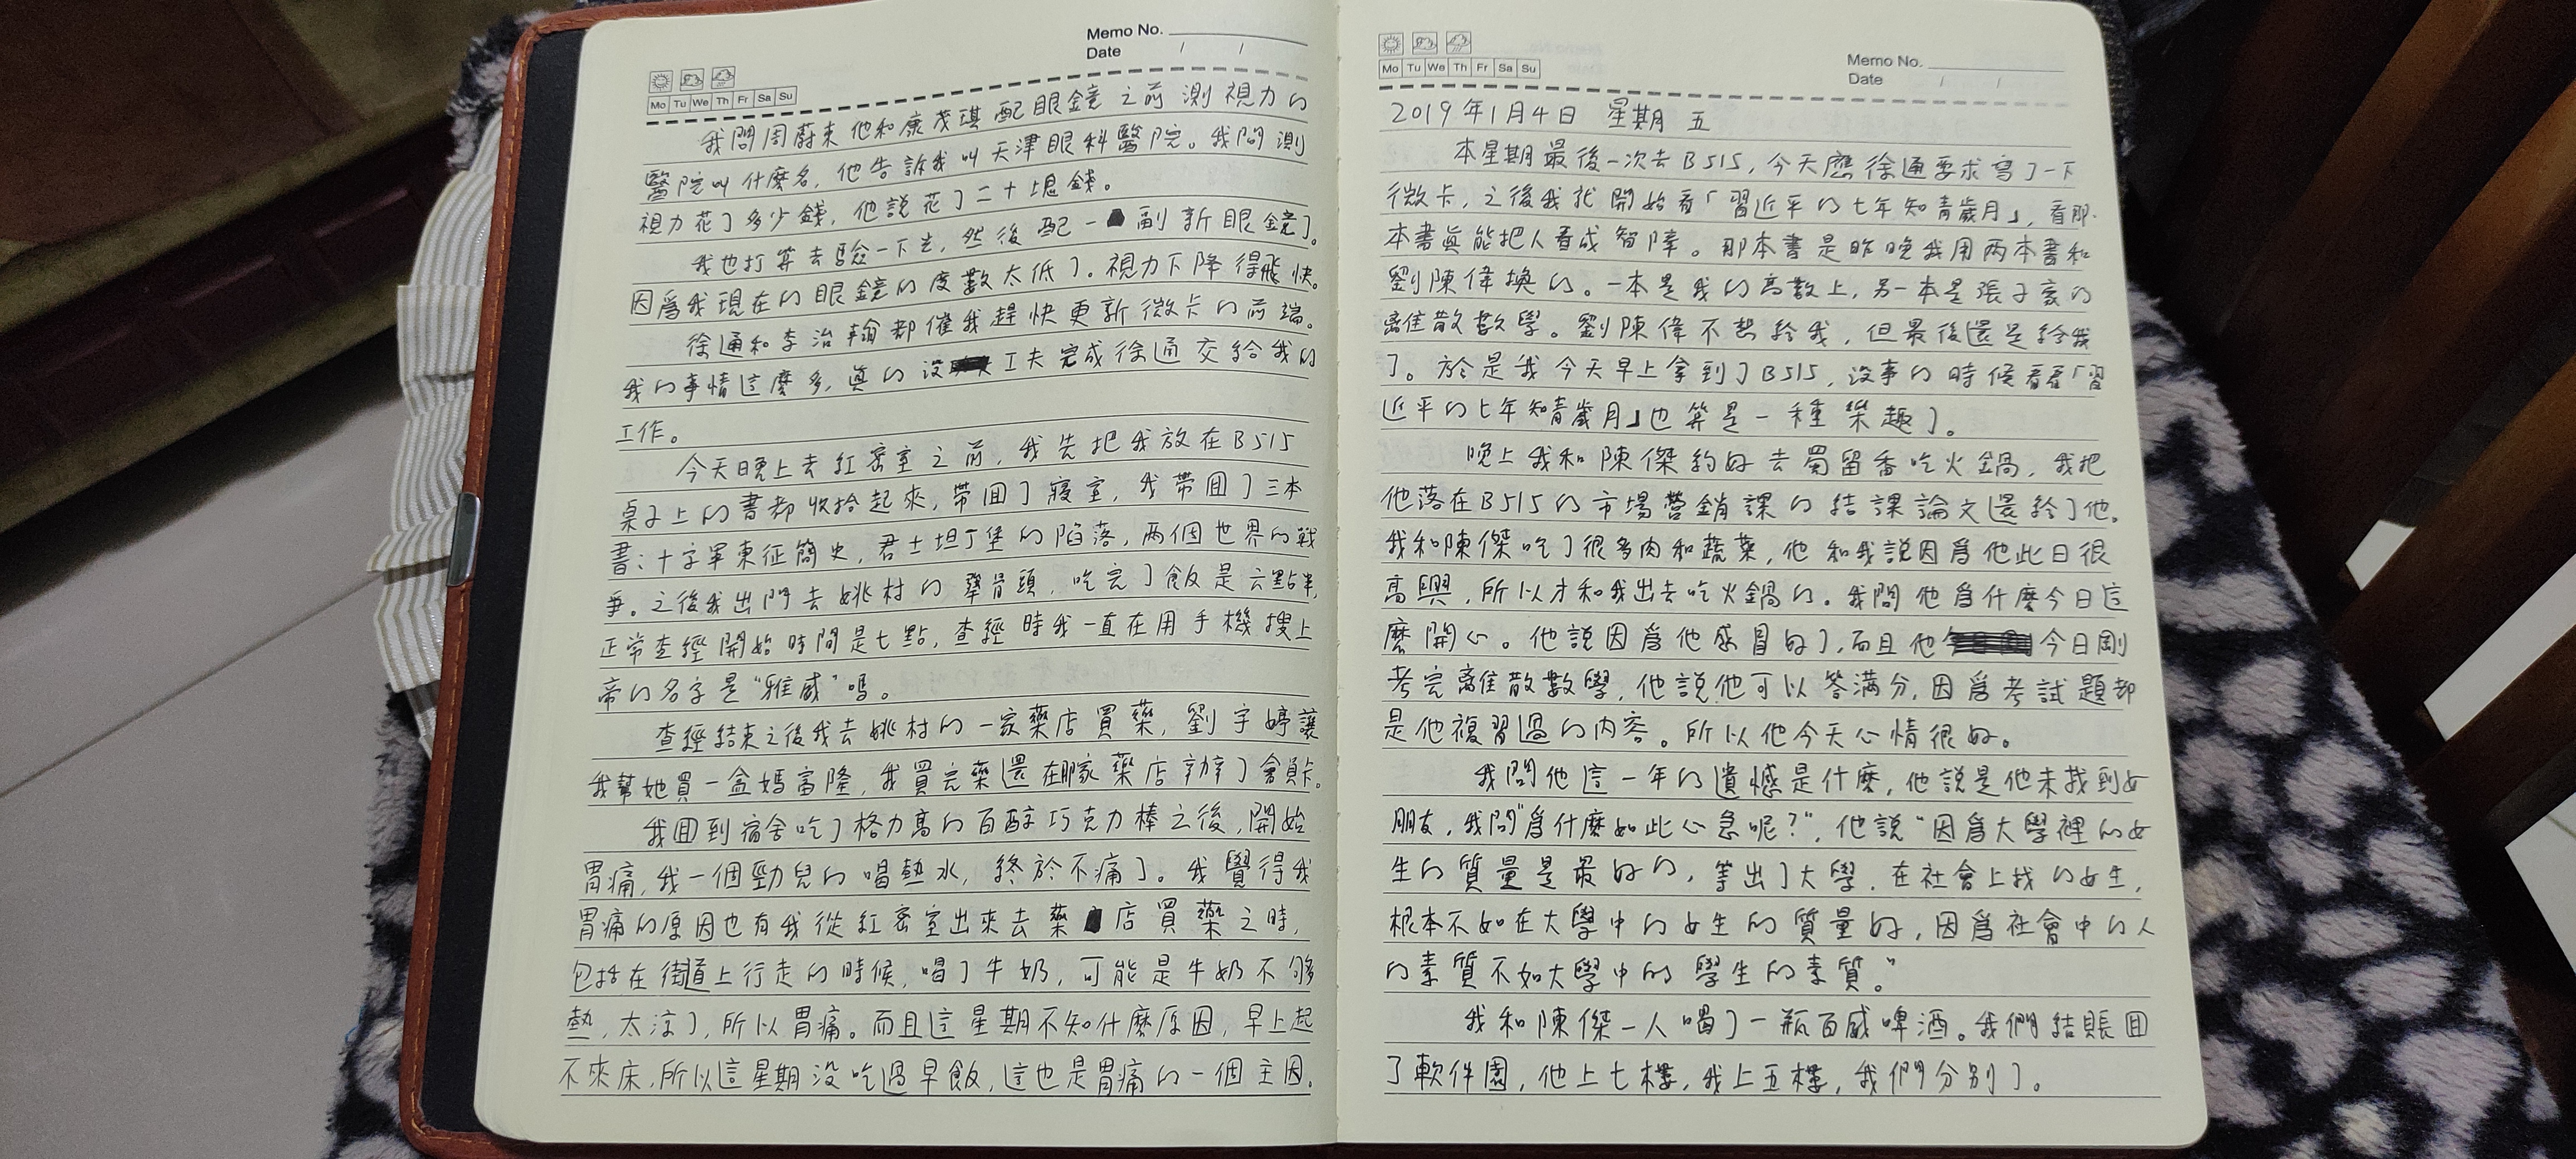 Memo No.
Date / /
Mo Tu We Th Fr Sa Su
我問周蔚東他和康茂琪配眼鏡之前測視力的
醫院叫什麼名，他告訴我叫天津眼科醫院。我問測
視力花了多少錢，他說花了二十塊錢。
我也打算去驗一下去，然後配一副新眼鏡了。
因爲我現在的眼鏡的度數太低了。視力下降得飛快。
徐通和李治翰都催我趕快更新微卡的前端。
我的事情這麼多，真的沒工夫完成徐通交給我的
工作。
今天晚上去紅密室之前，我先把我放在B515
桌子上的書都收拾起來，帶回了寢室，我帶回了三本
書：十字軍東征簡史，君士坦丁堡的陷落，兩個世界的戰
爭。之後我出門去姚村的犟骨頭，吃完了飯是六點半，
正常查經開始時間是七點，查經時我一直在用手機搜上
帝的名字是“雅威”嗎。
查經結束之後我去姚村的一家藥店買藥，劉宇婷讓
我幫她買一盒媽富隆，我買完藥還在那家藥店辦了會員卡。
我回到宿舍吃了格力高的百醇巧克力棒之後，開始
胃痛，我一個勁兒的喝熱水，終於不痛了。我覺得我
胃痛的原因也有我從紅密室出來去藥店買藥之時，
包括在街道上行走的時候，喝了牛奶，可能是牛奶不够
熱，太涼了，所以胃痛。而且這星期不知什麼原因，早上起
不來床，所以這星期沒吃過早飯，這也是胃痛的一個主因。
Mo Tu We Th Fr Sa Su
Memo No.
Date / /
2019年1月4日 星期五
本星期最後一次去B515，今天應徐通要求寫了一下
微卡，之後我就開始看「習近平的七年知青歲月」，看那
本書真能把人看成智障。那本書是昨晚我用两本書和
劉陳偉換的。一本是我的高數上，另一本是張子豪的
離散數學。劉陳偉不想給我，但最後還是給我
了。於是我今天早上拿到了B515，沒事的時候看看「習
近平的七年知青歲月」也算是一種樂趣了。
晚上我和陳傑約好去蜀留香吃火鍋，我把
他落在B515的市場營銷課的結課論文還給了他。
我和陳傑吃了很多肉和蔬菜，他和我說因爲他此日很
高興，所以才和我出去吃火鍋的。我問他爲什麼今日這
麼開心。他說因爲他感冒好了，而且他今日剛
考完離散數學，他說他可以答滿分，因爲考試題都
是他複習過的内容。所以他今天心情很好。
我問他這一年的遺憾是什麼，他說是他未找到女
朋友，我問“爲什麼如此心急呢？”，他說“因爲大學裡的女
生的質量是最好的，等出了大學，在社會上找的女生，
根本不如在大學中的女生的質量好，因爲社會中的人
的素質不如大學中的學生的素質。”
我和陳傑一人喝了一瓶百威啤酒。我們結賬回
了軟件園，他上七樓，我上五樓，我們分别了。